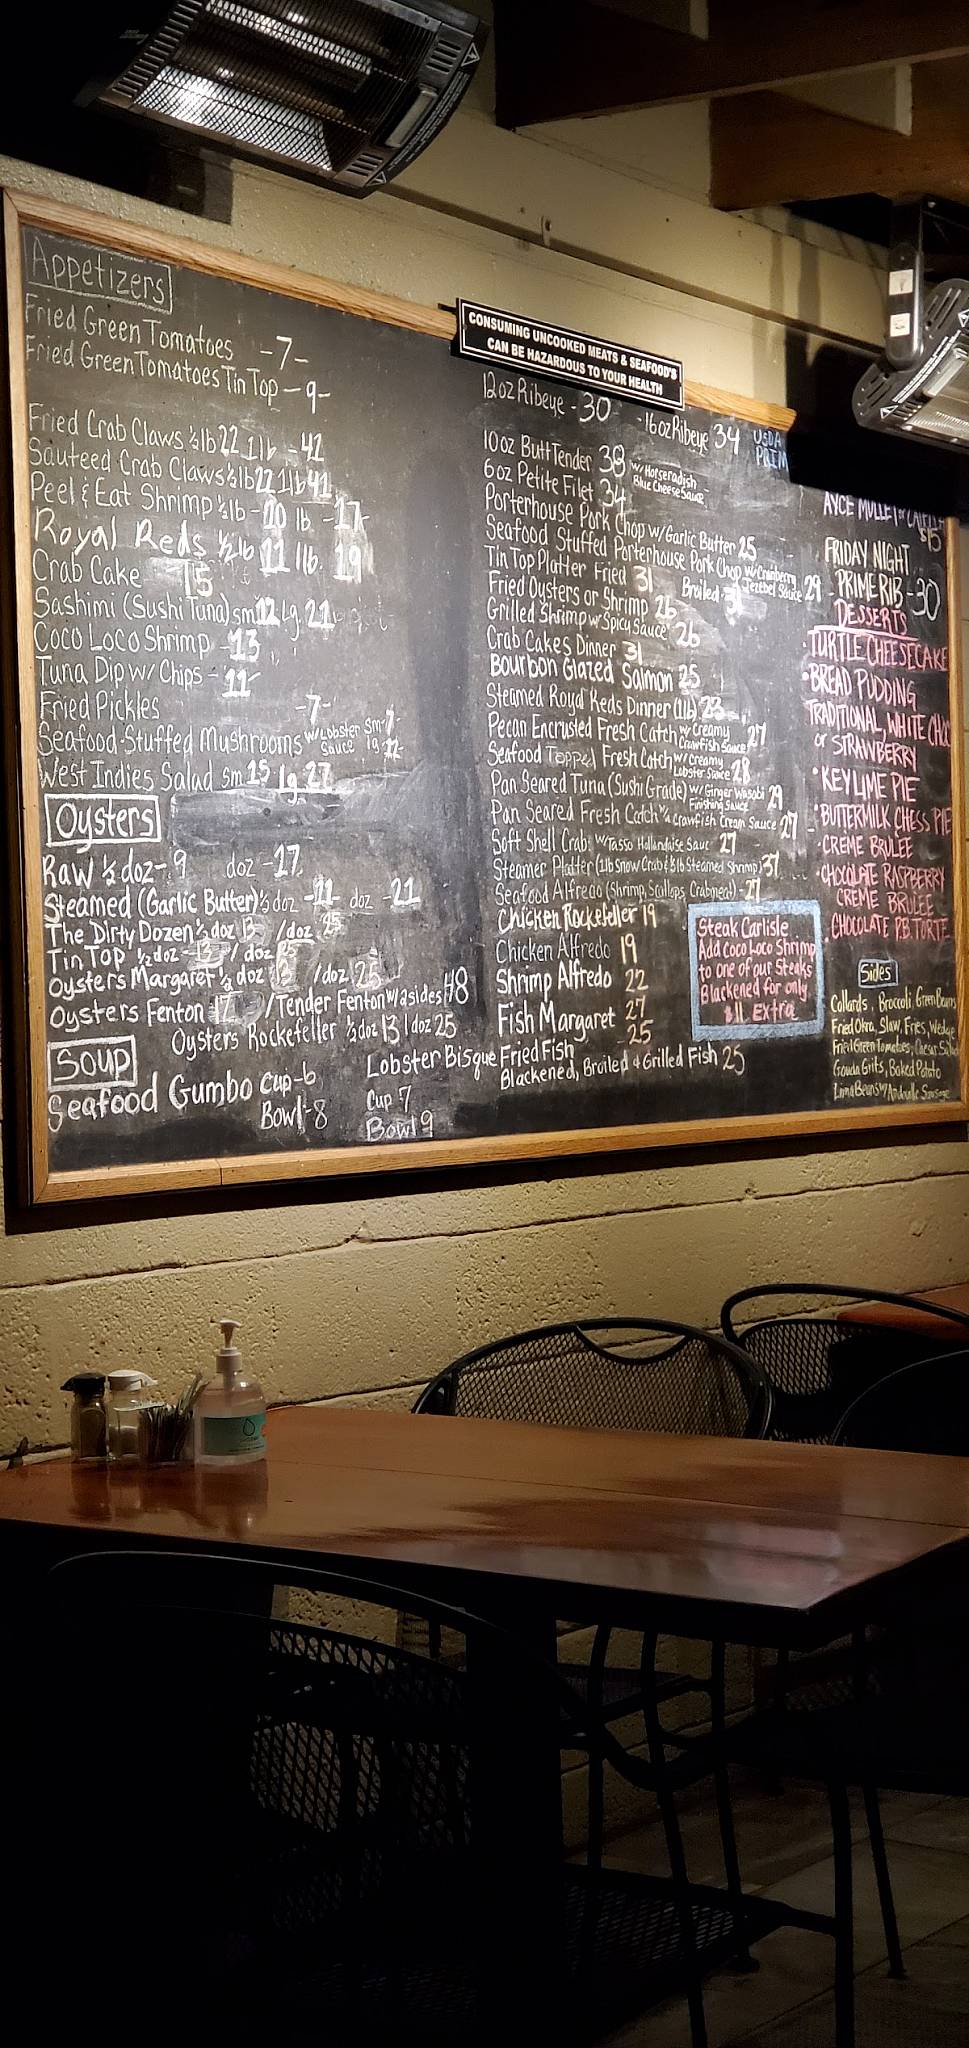 Appetizers
Fried Green Tomatoes -7-
Fried Green Tomatoes Tin Top -9-
Fried Crab Claws ½lb 22 1lb -41
Sauteed Crab Claws ½lb 22 1lb 41
Peel & Eat Shrimp ½lb -10 lb. -17-
Royal Reds ½lb 11 1lb. 19
Crab Cake 15
Sashimi (Sushi Tuna) sm 12 Lg. 21
Coco Loco Shrimp -13
Tuna Dip w/ Chips -11-
Fried Pickles -7-
Seafood-Stuffed Mushrooms w/Lobster Sauce sm-7 lg
West Indies Salad sm 15 lg 27
Oysters
Raw ½ doz-.9 doz -17.
Steamed (Garlic Butter) ½ doz -11- doz -21
The Dirty Dozen ½ doz 13 /doz 25
Tin TOP ½ doz -13 / doz
Oysters Margaret ½ doz 13 /doz 25
Oysters Fenton 12 /Tender Fenton w/2 sides 48
Oysters Rockefeller ½ doz 13 1 doz 25
Soup
Seafood Gumbo Cup-6
Bowl-8
Lobster Bisque
Cup 7
Bowl 9
CONSUMING UNCOOKED MEATS & SEAFOOD'S
CAN BE HAZARDOUS TO YOUR HEALTH
12oz Ribeye -30- -16oz Ribeye 34
USDA
PRIM
10oz Butt Tender 38 w/ Horseradish
Blue Cheese Sauce
6oz Petite Filet 34
Porterhouse Pork Chop w/Garlic Butter 25
Seafood Stuffed Porterhouse Pork Chop w/Cranberry
Jezebel Sauce 29
Tin Top Platter Fried 31 Broiled 31
Fried Oysters or Shrimp 26
Grilled Shrimp w/ Spicy Sauce 26
Crab Cakes Dinner 31
Bourbon Glazed Salmon 25
Steamed Royal Reds Dinner (1lb) 23
Pecan Encrusted Fresh Catch w/ Creamy
Crawfish Sauce 27
Seafood Topped Fresh Catch w/ Creamy
Lobster Sauce 28
Pan Seared Tuna (Sushi Grade) w/ Ginger Wasabi
Finishing Sauce 29
Pan Seared Fresh Catch w/ Crawfish Cream Sauce 27
Soft Shell Crab w/Tasso Hollandaise Sauc 27
Steamer Platter (1lb Snow Crab & ½lb Steamed Shrimp) 37
Seafood Alfredo (Shrimp, Scallops, Crabmeat) -27
Chicken Rockefeller 19
Chicken Alfredo 19
Shrimp Alfredo 22
Fish Margaret 27
Fried Fish 25
Blackened, Broiled & Grilled Fish 25
Steak Carlisle
Add Coco Loco Shrimp
to one of our Steaks
Blackened for only
$11 Extra
AYCE MULLET or
$15
FRIDAY NIGHT
PRIME RIB -30
DESSERTS
• TURTLE CHEESECAKE
• BREAD PUDDING
TRADITIONAL, WHITE CHOC
or STRAWBERRY
• KEY LIME PIE
• BUTTERMILK CHESS PIE
• CREME BRULEE
• CHOCOLATE RASPBERRY
CREME BRULEE
• CHOCOLATE P.B. TORTE
Sides
Collards, Broccoli, Green Beans
Fried Okra, Slaw, Fries, Wedge
Fried Green Tomatoes, Caesar Salad
Gouda Grits, Baked Potato
Lima Beans w/ Andouille Sausage